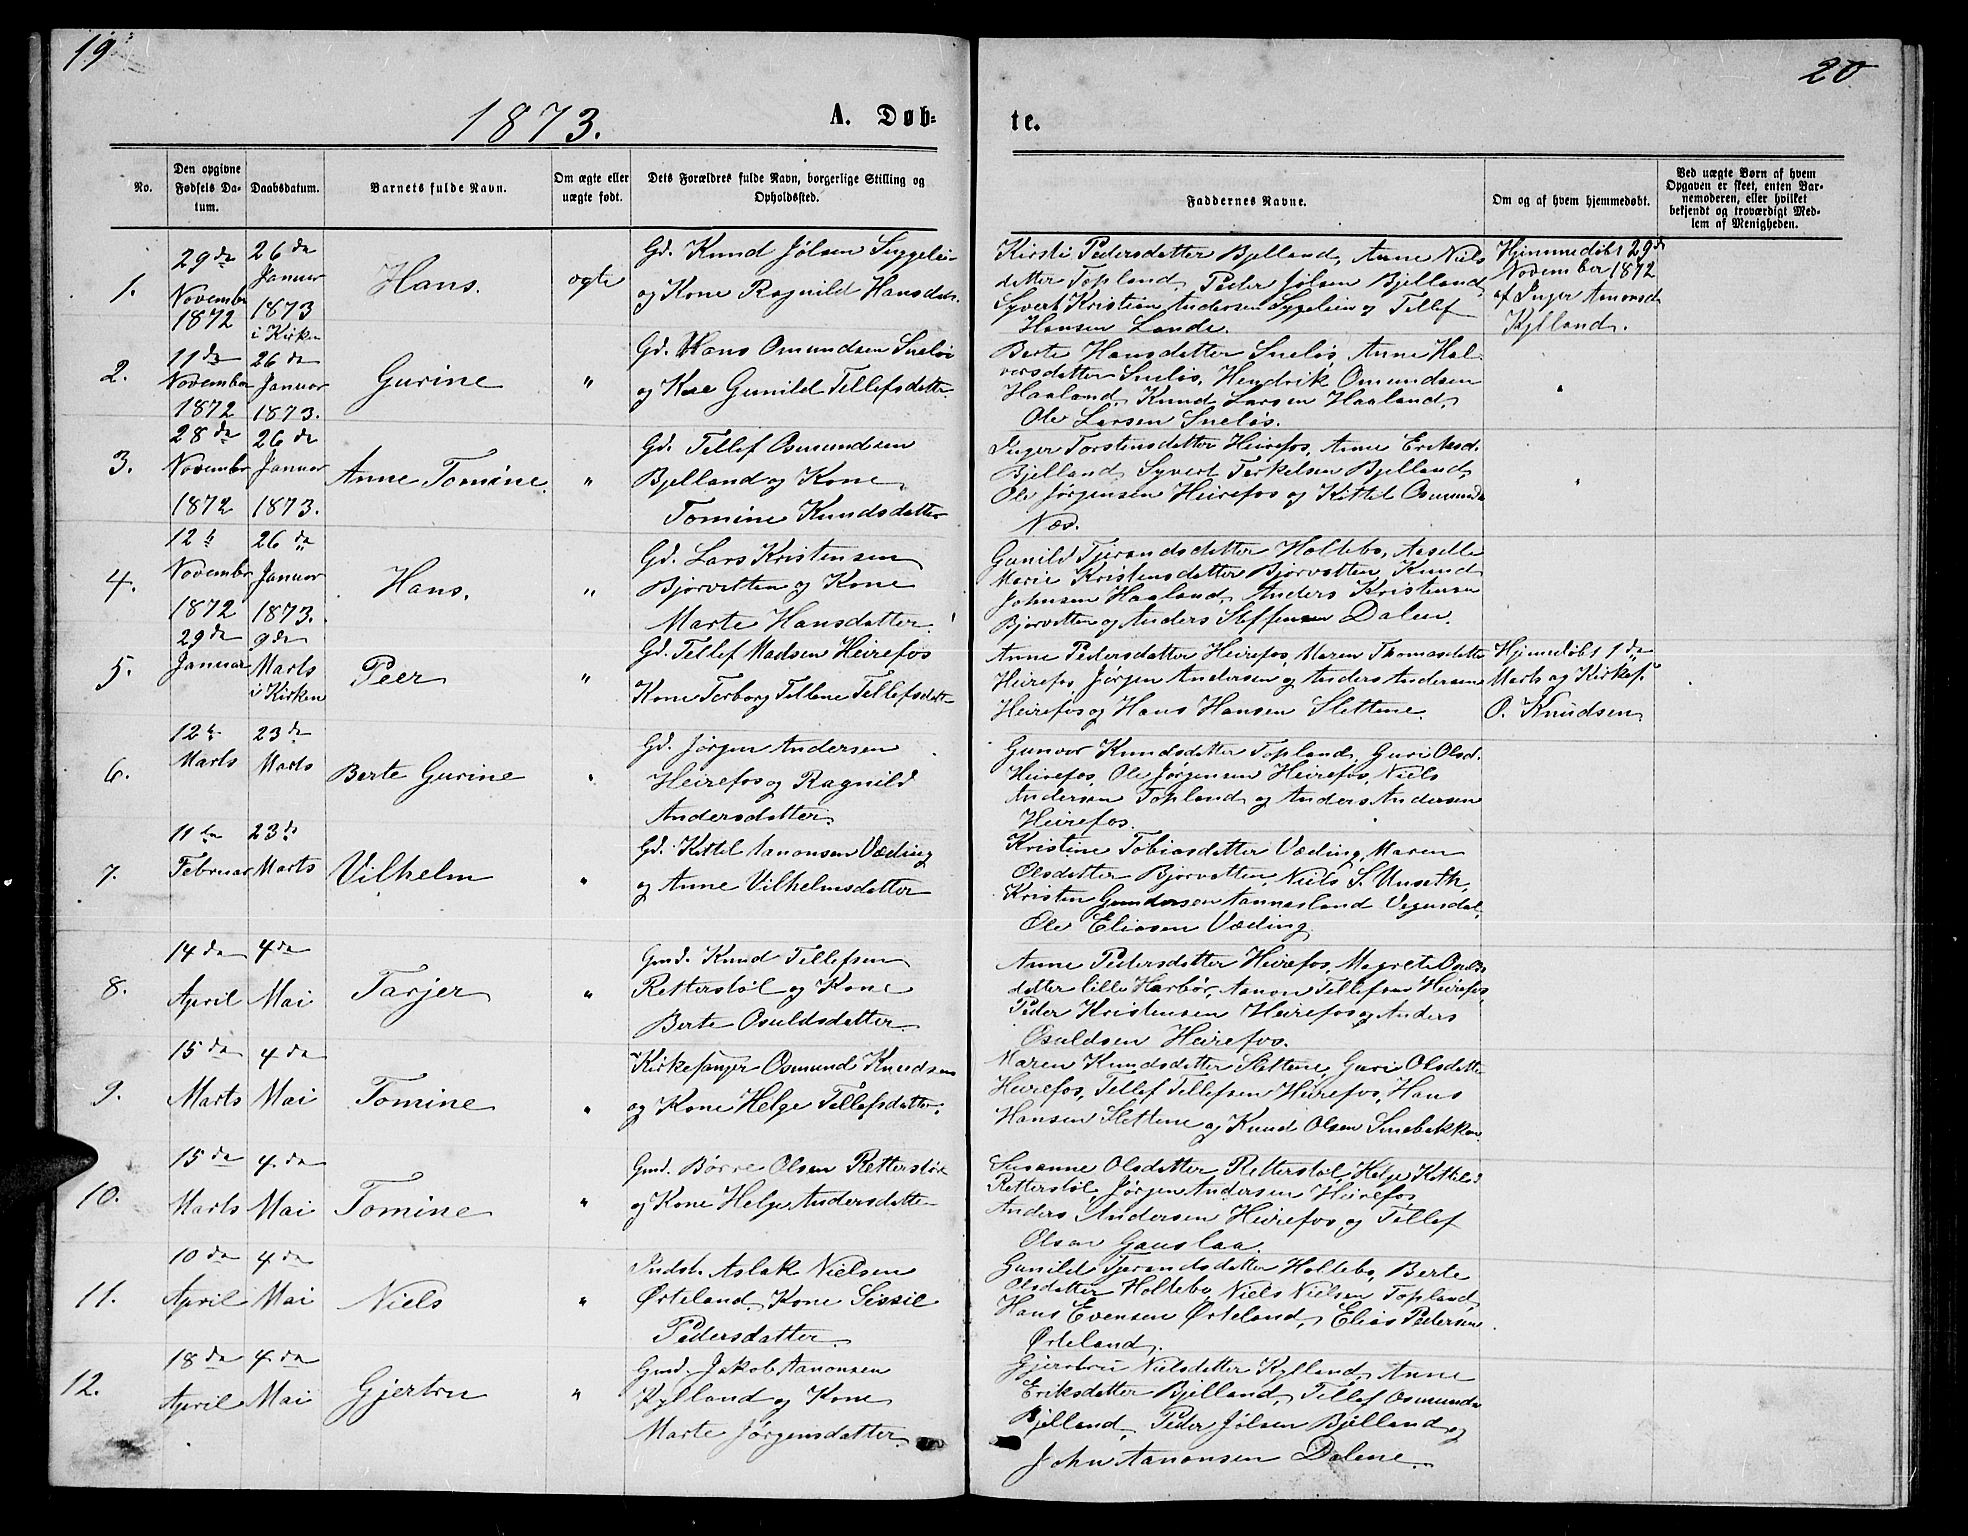 19
20
1873.
A. Døb-
te.
No.
Den opgivne
Fødsels Da-
tum.
Daabsdatum.
Barnets fulde Navn.
Om ægte eller
uægte født.
Dets Forældres fulde Navn, borgerlige Stilling og
Opholdssted.
Faddernes Navne.
Om og af hvem hjemmedøbt.
Ved uægte Børn af hvem
Opgaven er skeet, enten Bar-
nemoderen, eller hvilket
bekjendt og troværdigt Med-
lem af Menigheden.
1.
29de
November
1872
26de
Januar
1873
i Kirken
Hans.
ægte
Gd. Knud Jølsen
og Kone Ragnild Hansdatr.
Kirsti Pedersdatter Bjelland, Anne Niels
datter Topland, Peder Jølsen Bjelland,
Syvert Kristian Andersen og Tellef
Hansen Lande.
Hjemmedøbt 29de
November 1872
af Inger Aanonsd.
Kylland.
2.
11de
November
1872
26de
Januar
1873.
Gurine
"
Gd. Hans Omundsen Sneløs
og Kone Gunild Tellefsdatter
Berte Hansdatter Sneløs, Anne Hal-
vorsdatter Sneløs, Hendrik Omundsen
Haaland, Knud Larsen Haaland,
Ole Larsen Sneløs.
"
3.
28de
November
1872
26de
Januar
1873.
Anne Tomine
"
Gd. Tellef Osmundsen
Bjelland og Kone
Tomine Knudsdatter
Inger Torstensdatter Heirefos, Anne Eriksd.
Bjelland, Syvert Terkelsen Bjelland,
Ole Jørgensen Heirefos og Kittil Osmunds
Næs.
"
4.
12te
November
1872
26de
Januar
1873.
Hans.
"
Gd. Lars Kristensen
Bjorvatten og Kone
Marte Hansdatter.
Gunild Tjerandsdatter Holtebo,
Marie Kristensdatter Bjorvatten, Knud
Johnsen Haaland, Anders Kristensen
Bjorvatten og Anders Steffensen Dalen.
5.
29de
Januar
9de
Marts
i Kirken
Peer
"
Gd. Tellef Madsen Heirefos
Kone Torborg Tellene Tellefsdatt
Anne Pedersdatter Heirefos, Maren Thomasdatter
Heirefos, Jørgen Andersen og Anders Andersen
Heirefos og Hans Hansen Slettene.
Hjemedøbt 1de
Marts af Kirkes.
O. Knudsen
6.
12te
Marts
23de
Marts
Berte Gurine
"
Gd. Jørgen Andersen
Heirefos og Ragnild
Andersdatter.
Gunvor Knudsdatter Topland, Guri Olsd.
Heirefos, Ole Jørgensen Heirefos, Niels
Andersen Topland og Anders Andersen
Heirefos.
7.
11te
Februar
23de
Marts
Vilhelm
"
Gd. Kittel Aanonsen Væding
og Anne Vilhelmsdatter
Kristine Tobiasdatter Væding, Maren
Olsdatter Bjorvatten, Niels S. Unseth,
Kristen Gundersen Aannasland Vegusdal,
Ole Eliasen Væding
8.
14de
April
4de
Mai
Tarjer
"
Gmd. Knud Tellefsen
Retterstøl og Kone
Berte Osuldsdatter.
Anne Pedersdatter Heirefos, Magrete Osulds
datter lille Harbør, Aanon Tellefsen Heirefos,
Peder Kristensen Heirefos og Anders
Osuldsen Heirefos.
9.
15de
Marts
4de
Mai
Tomine
"
Kirkesanger Osmund Knudsen
og Kone Helge Tellefsdatter.
Maren Knudsdatter Slettene, Guri Olsdatter
Heirefos, Tellef Tellefsen Heirefos, Hans
Hansen Slettene og Knud Olsen Smebakken.
10.
15de
Marts
4de
Mai
Tomine
"
Gmd. Børre Olsen Retterstøl
og Kone Helge Andersdatter
Susanne Olsdatter Retterstøl, Helge Kittelsd
Retterstøl, Jørgen Andersen Heirefos,
Anders Andersen Heirefos, og Tellef
Olsen Gauslaa.
11.
10de
April
4de
Mai
Niels
"
Indst. Aslak Nielsen
Ørteland, Kone Sissil
Pedersdatter.
Gunild Tjerandsdatter Holtebo, Berte
Olsdatter Holtebo, Niels Nielsen Topland,
Hans Evensen Ørteland, Elias Pedersen
Ørteland.
12.
18de
April
4de
Mai
Gjertru
"
Gmd. Jakob Aanonsen
Kylland og Kone
Marte Jørgensdatter.
Gjertru Nielsdatter Kylland, Anne
Eriksdatter Bjelland, Tellef Osmunds
Bjelland, Peder Jølsen Bjelland og
John Aanonsen Dalene.